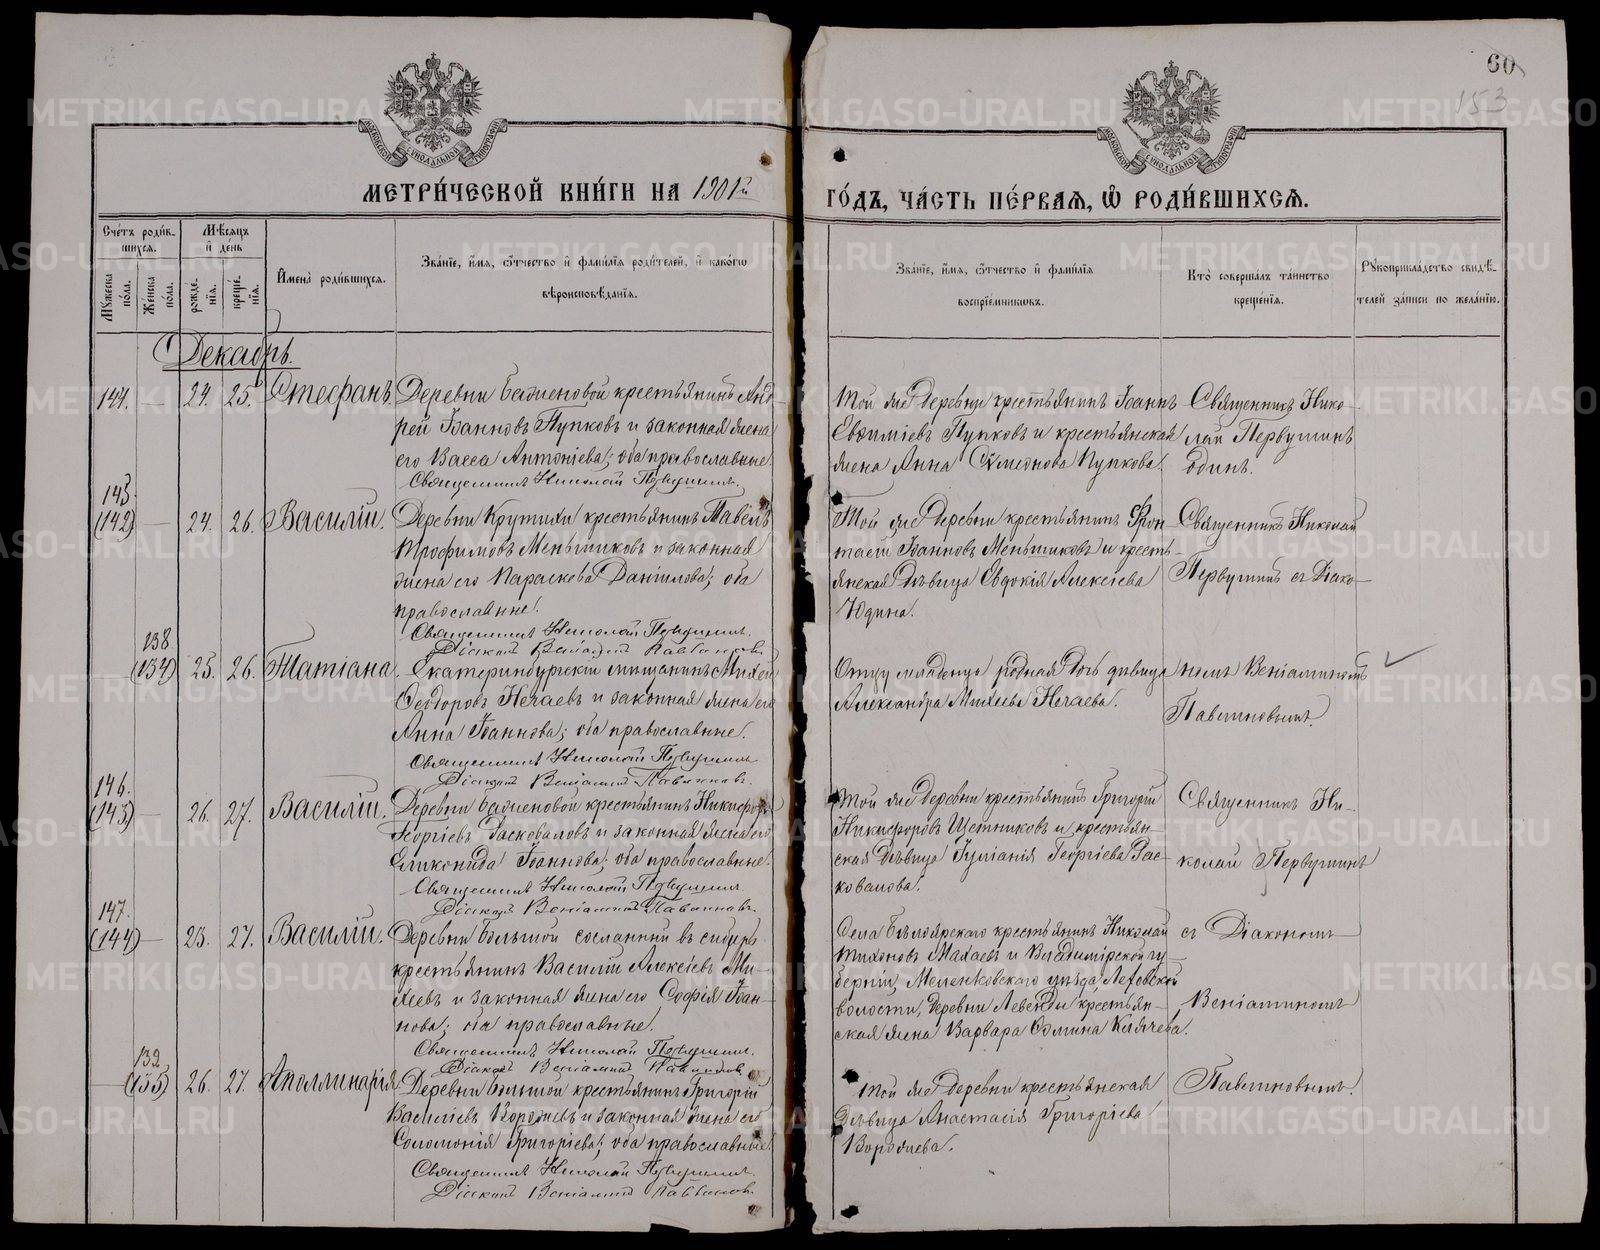 60
153
МОСКОВСКОЙ СУНОДАЛЬНОЙ ТИПОГРАФІИ
МОСКОВСКОЙ СУНОДАЛЬНОЙ ТИПОГРАФІИ
МЕТРИ́ЧЕСКОЙ КНИ́ГИ НА 1901й
ГО́ДЪ, ЧА́СТЬ ПЕ́РВАЯ, Ѽ РОДИ́ВШИХСЯ.
Сче́тъ роди́в-
шихся.
Мꙋжеска по́ла.
Же́нска по́ла.
Мѣ́сяцъ и҆ де́нь
рожде́-
нїя.
креще́-
нїя.
И҆мена̀ роди́вшихся.
Зва́нїе, и҆́мя, ѻ҆́тчество и҆ фамѝлїя роди́телей, и҆ како́гѡ
вѣроисповѣ́данїя.
Зва́нїе, и҆́мя, ѻ҆́тчество и҆ фамѝлїя
воспрїе́мникѡвъ.
Кто̀ соверша́лъ та́инство
креще́нїя.
Рꙋкоприкла́дство свидѣ́-
телей за́писи по жела́нїю.
Декабрь.
144. — 24. 25. Стефанъ.
Деревни Баженовой крестьянинъ Анд-
рей Іоанновъ Пупковъ и законная жена
его Васса Антоніева; оба православные.
Священникъ Николай Первушинъ.
Той же деревни крестьянинъ Іоаннъ
Евѳиміевъ Пупковъ и крестьянская
жена Анна Сѵмеонова Пупкова.
Священникъ Нико-
лай Первушинъ
одинъ.
145.
(142) — 24. 26. Василій.
Деревни Крутихи крестьянинъ Павелъ
Трофимовъ Меньшиковъ и законная
жена его Параскева Даніилова; оба
православные.
Священникъ Николай Первушинъ.
Діаконъ Веніаминъ
Той же деревни крестьянинъ
Іоанновъ Меньшиковъ и кресть-
янская дѣвица Евдокія Алексіева
Юдина.
Священникъ Николай
Первушинъ съ Діако-
138
(134) 25. 26. Татіана.
Екатеринбургскій мѣщанинъ Михей
Ѳеодоровъ Нечаевъ и законная жена его
Анна Іоаннова; оба православные.
Священникъ Николай Первушинъ
Діаконъ Веніаминъ
родная дочь дѣвица
Александра Михеева Нечаева.
номъ Веніаминомъ
146.
(143) — 26. 27. Василій.
Деревни Баженовой крестьянинъ Никифоръ
Георгіевъ Расковаловъ и законная жена его
Іоаннова; оба православные.
Священникъ Николай Первушинъ
Діаконъ Веніаминъ
Той же деревни крестьянинъ Григорій
Никифоровъ Щетниковъ и крестьян-
ская дѣвица Іуліанія Георгіева Рас-
ковалова.
Священникъ Ни-
колай Первушинъ
147.
(144) — 23. 27. Василій.
Деревни Большой сосланный въ сибирь
крестьянинъ Василій Алексіевъ Ми-
хеевъ и законная жена его Софія Іоан-
нова; оба православные.
Священникъ Николай Первушинъ.
Діаконъ Веніаминъ
Села Бѣлоярскаго крестьянинъ Николай
Тихоновъ Махаевъ и Владимірской гу-
берніи, Меленковскаго уѣзда
волости, деревни крестьян-
ская жена Варвара
съ Діакономъ
Веніаминомъ
139.
(135) 26. 27. Аполлинарія.
Деревни Большой крестьянинъ Григорій
Василіевъ и законная жена его
Соломонія Григоріева; оба православные.
Священникъ Николай Первушинъ.
Діаконъ Веніаминъ
Той же деревни крестьянская
дѣвица Анастасія Григоріева
METRIKI.GASO-URAL.RU